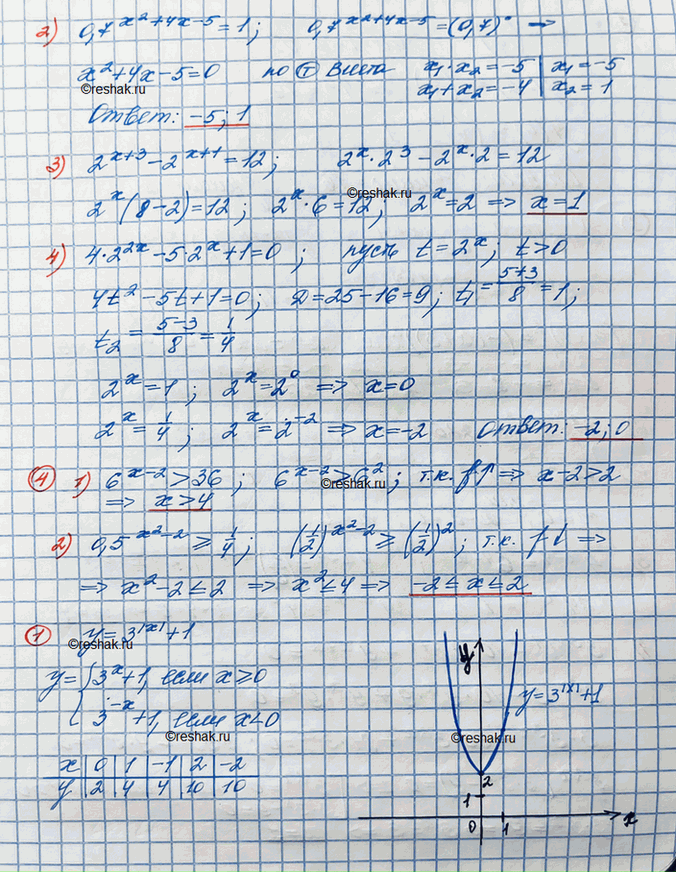 2) 0,7^(x²+4x-5) = 1; 0,7^(x²+4x-5) = (0,7)⁰ →
x²+4x-5=0 по Ⓣ Виета x₁·x₂=-5 | x₁=-5
x₁+x₂=-4 | x₂=1
©reshak.ru
Ответ: -5; 1
3) 2^(x+3) - 2^(x+1) = 12; 2^x·2³ - 2^x·2 = 12
©reshak.ru
2^x(8-2)=12; 2^x·6=12; 2^x=2 => x=1
4) 4·2^(2x) - 5·2^x + 1 = 0; пусть t=2^x; t>0
4t²-5t+1=0; D=25-16=9; t₁ = (5+3)/8 = 1;
t₂ = (5-3)/8 = 1/4
2^x=1; 2^x=2⁰ => x=0
2^x = 1/4; 2^x = 2^(-2) => x=-2 Ответ: -2; 0
④ 1) 6^(x-2) > 36; 6^(x-2) > 6²; т.к. f↑ => x-2>2
©reshak.ru
=> x>4
2) 0,5^(x²-2) ≥ 1/4; (1/2)^(x²-2) ≥ (1/2)²; т.к. f↓ =>
=> x²-2≤2 => x²≤4 => -2≤x≤2
① y=3^|x|+1
©reshak.ru
y = { 3^x+1, если x≥0
3^(-x)+1, если x<0
©reshak.ru
x | 0 | 1 | -1 | 2 | -2
y | 2 | 4 | 4 | 10 | 10
y
y=3^|x|+1
©reshak.ru
2
1
0 1 x